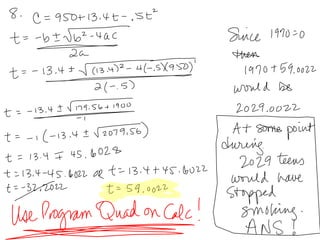 8. C = 950 + 13.4t - .5t²
t = -b ± √b² - 4ac
2a
t = -13.4 ± √(13.4)² - 4(-.5)(950)
2(-.5)
t = -13.4 ± √179.56 + 1900
-1
t = -1(-13.4 ± √2079.56)
t = 13.4 ∓ 45.6028
t = 13.4 - 45.6022 OR t = 13.4 + 45.6022
t = -32.2022 t = 59.0022
Use Program Quad on Calc!
Since 1970=0
then
1970 + 59.0022
would be
2029.0022
At some point
during
2029 teens
would have
stopped
smoking.
ANS!